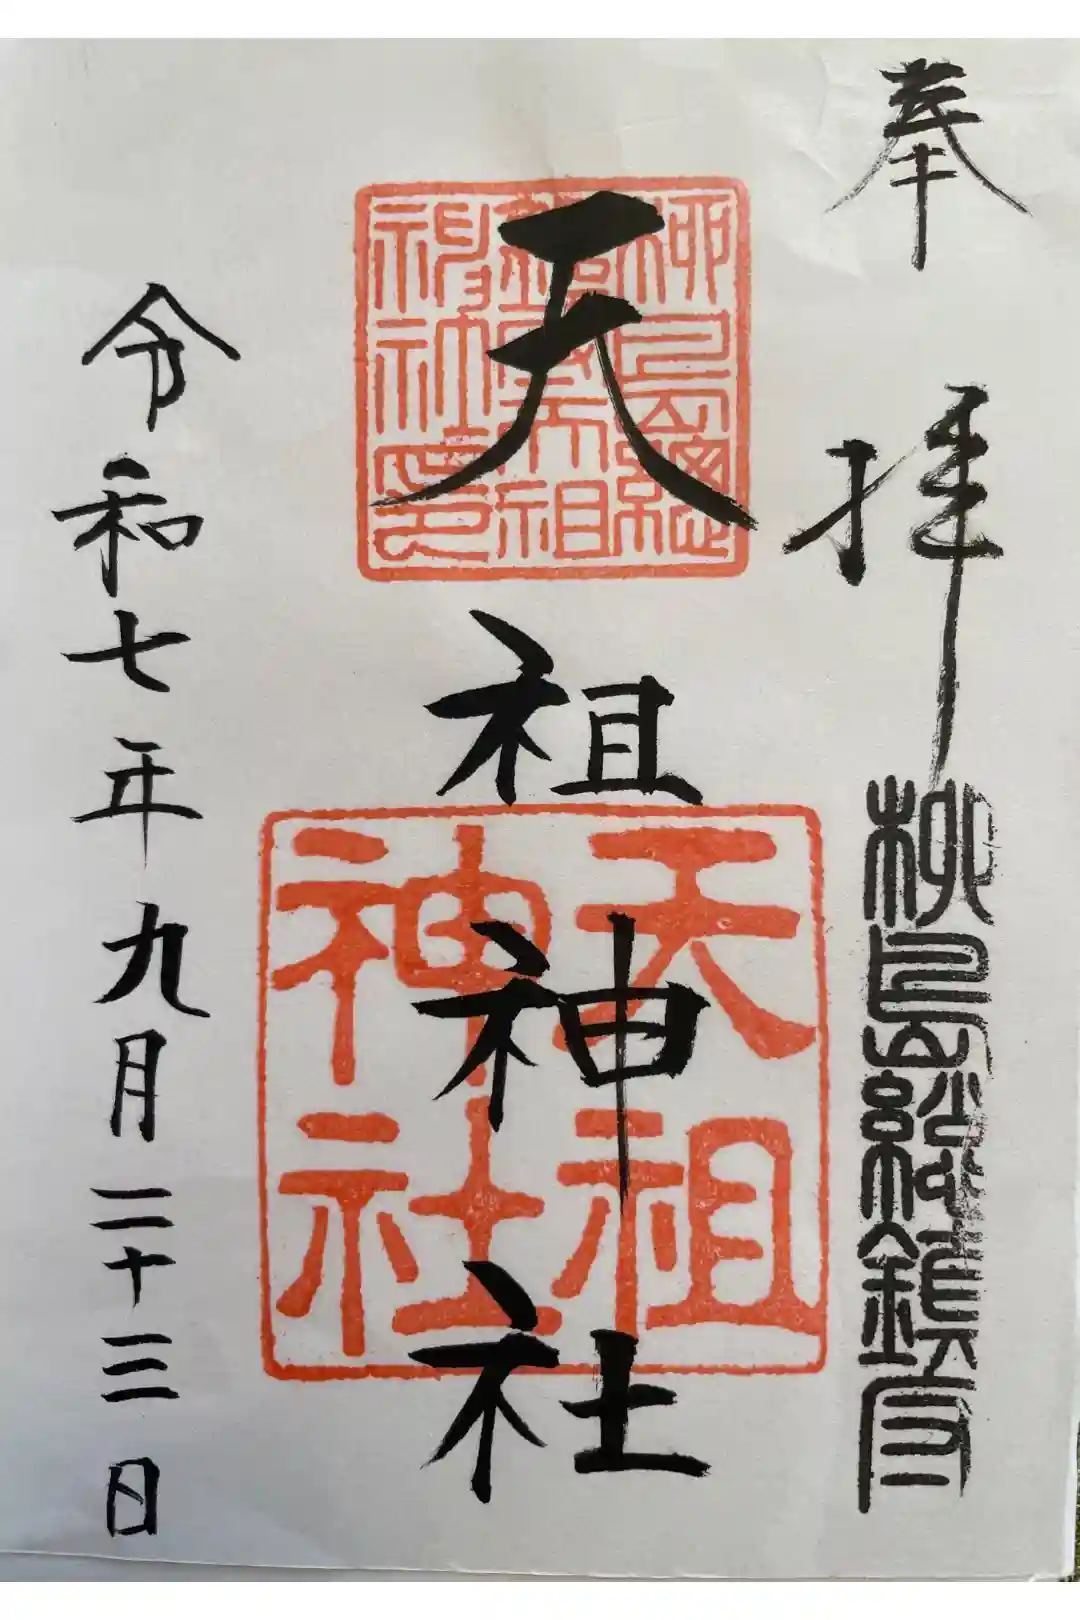 奉拝
柳島総鎮守
柳島総鎮守天祖神社印
天祖神社
天祖神社
令和七年九月二十三日